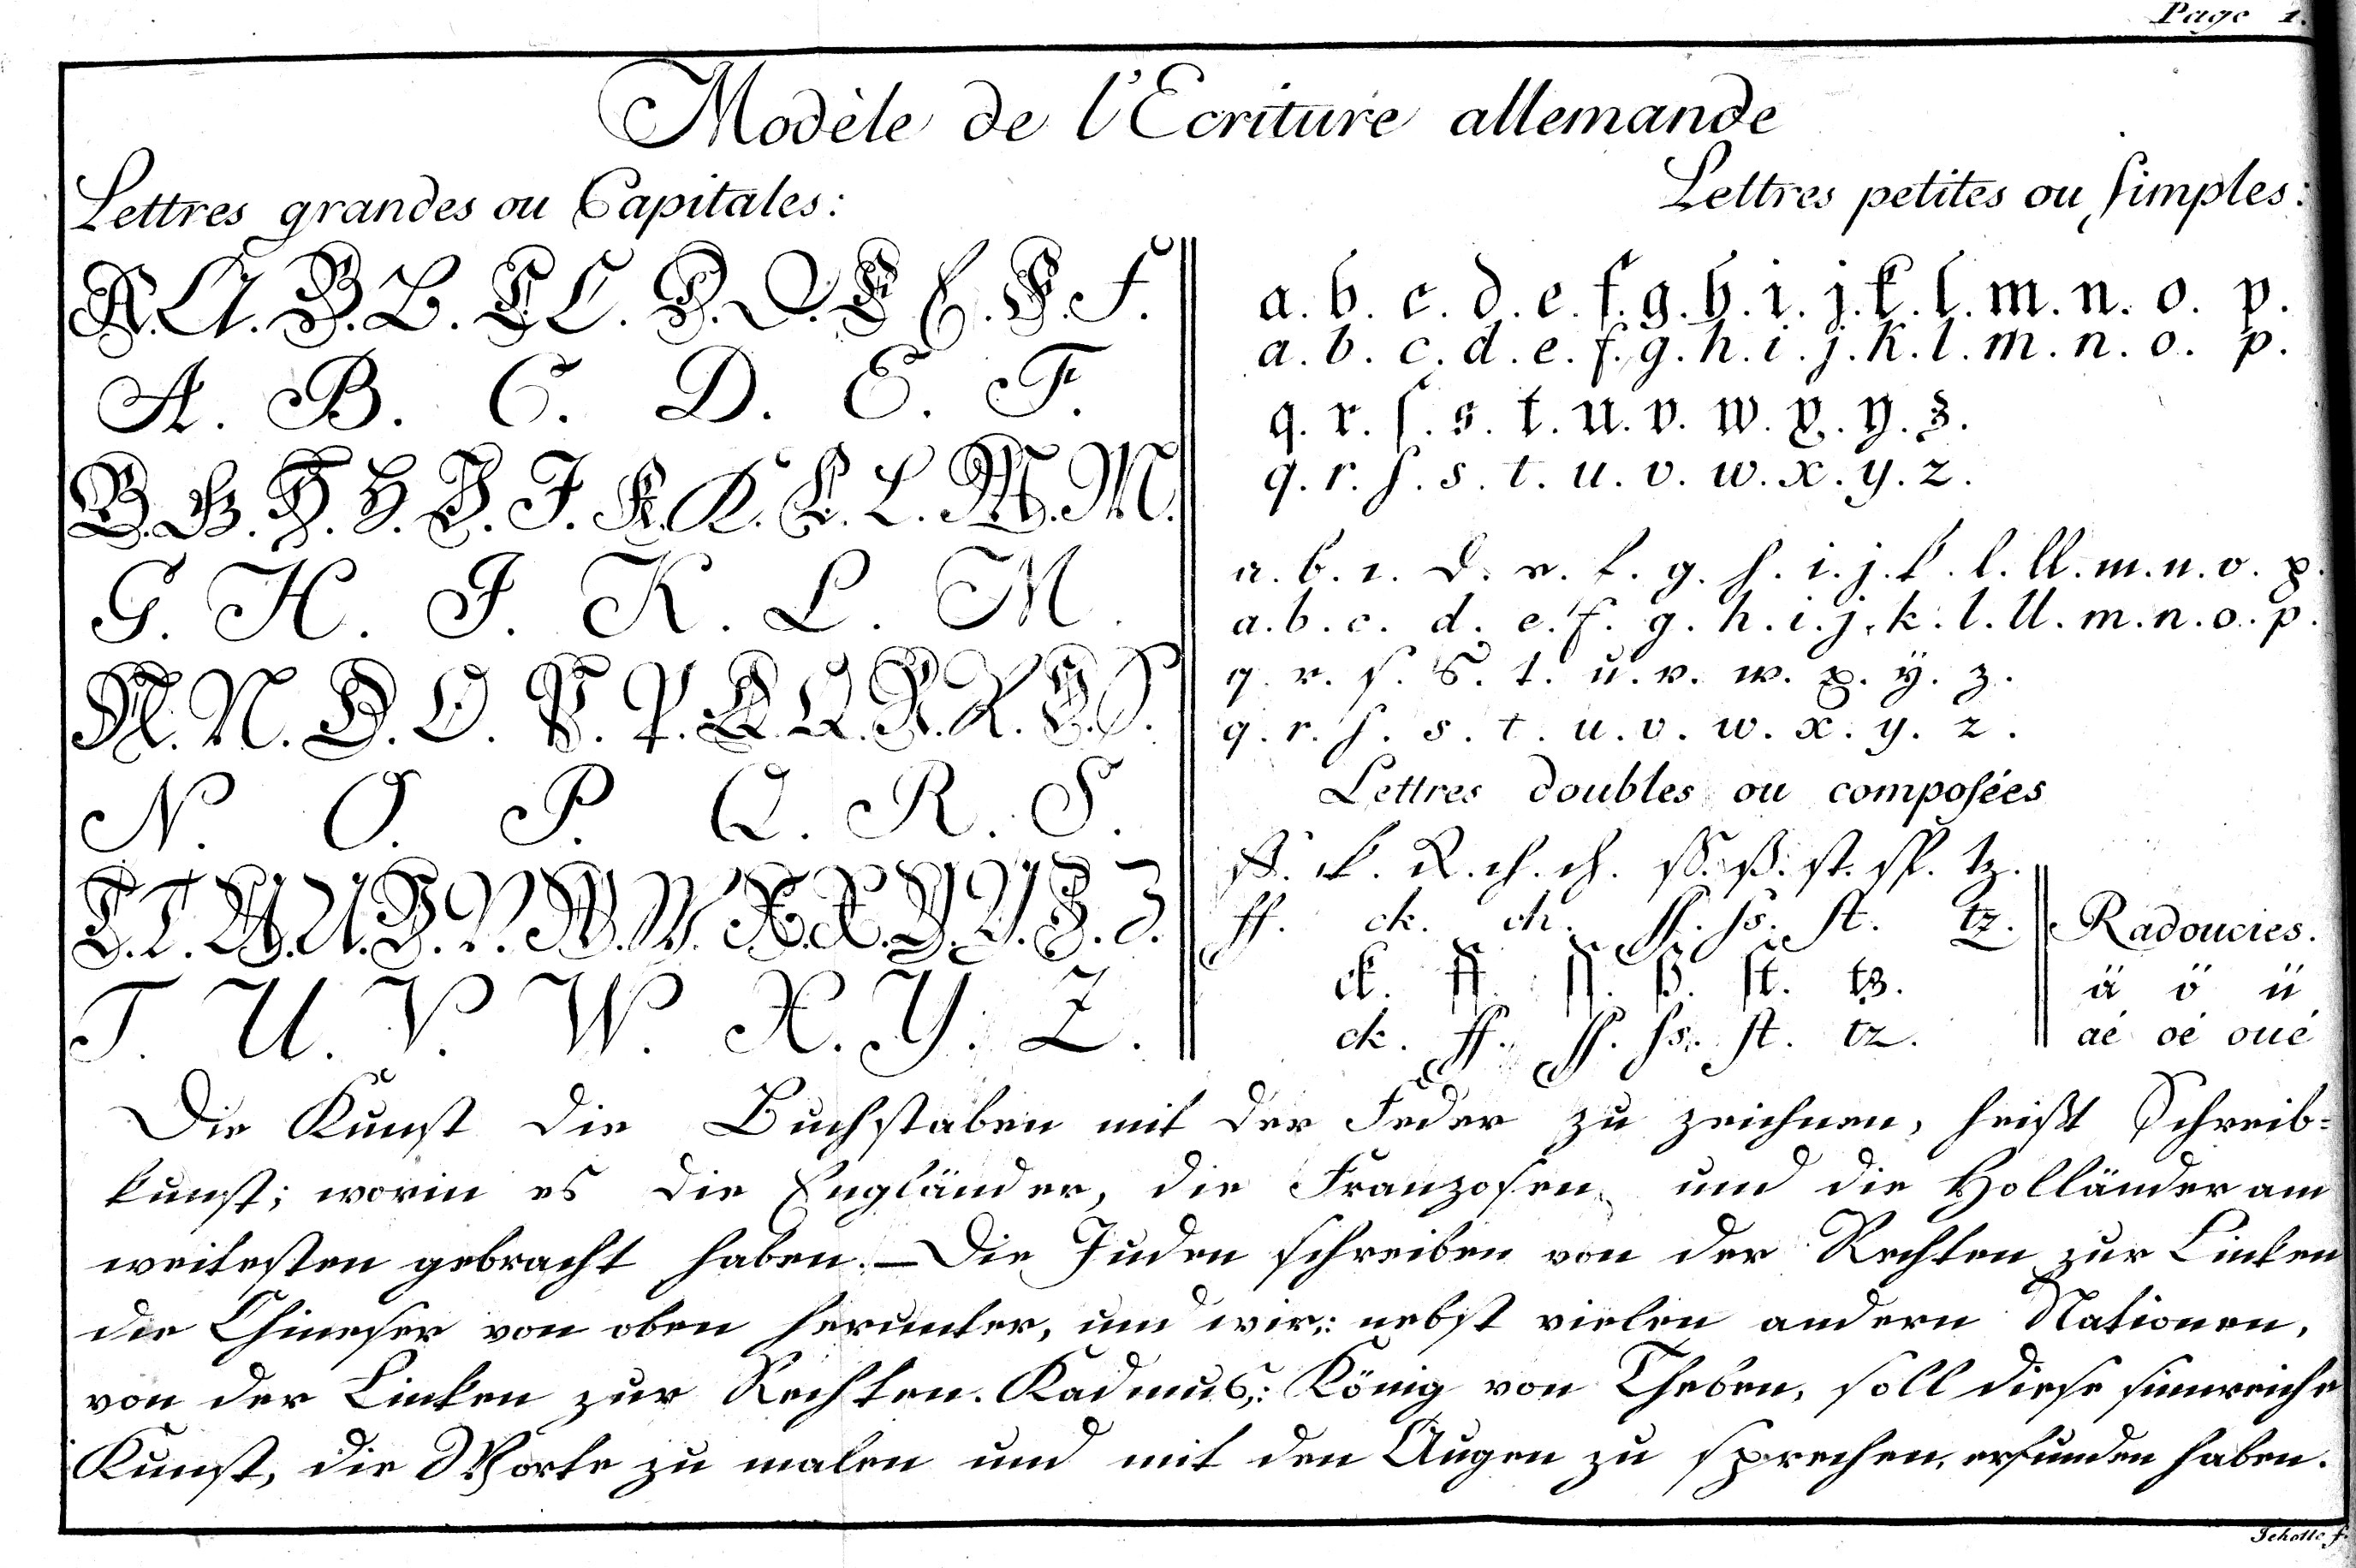 Page 1.
Modèle de l'Ecriture allemande
Lettres grandes ou Capitales:
A. A. B. B. C. C. D. D. E. E. F. F.
A. B. C. D. E. F.
G. G. H. H. J. J. K. K. L. L. M. M.
G. H. J. K. L. M.
N. N. O. O. P. P. Q. Q. R. R. S. S.
N. O. P. Q. R. S.
T. T. U. U. V. V. W. W. X. X. Y. Y. Z. Z.
T. U. V. W. X. Y. Z.
Lettres petites ou ſimples:
a. b. c. d. e. f. g. h. i. j. k. l. m. n. o. p.
a. b. c. d. e. f. g. h. i. j. k. l. m. n. o. p.
q. r. ſ. s. t. u. v. w. x. y. z.
q. r. ſ. s. t. u. v. w. x. y. z.
a. b. c. d. e. f. g. h. i. j. k. l. ll. m. n. o. p.
a. b. c. d. e. f. g. h. i. j. k. l. ll. m. n. o. p.
q. r. ſ. s. t. u. v. w. x. y. z.
q. r. ſ. s. t. u. v. w. x. y. z.
Lettres doubles ou compoſées
ff. ck. ck. ch. ch. ſſ. ß. ſt. ſſ. tz.
ff. ck. ch. ſſ. ſs. ſt. tz.
ck. ff. ſſ. ß. ſt. tz.
ck. ff. ſſ. ſs. ſt. tz.
Radoucies.
ä ö ü
aé oé oué
Die Kunſt die Buchſtaben mit der Feder zu zeichnen, heißt Schreib-
kunſt; worin es die Engländer, die Franzoſen und die Holländer am
weiteſten gebracht haben. — Die Juden ſchreiben von der Rechten zur Linken
die Chineſer von oben herunter, und wir: nebſt vielen andern Nationen,
von der Linken zur Rechten. Kadmus: König von Theben, ſoll dieſe ſinnreiche
Kunſt, die Worte zu malen und mit den Augen zu ſprechen, erfunden haben.
Schotte f.